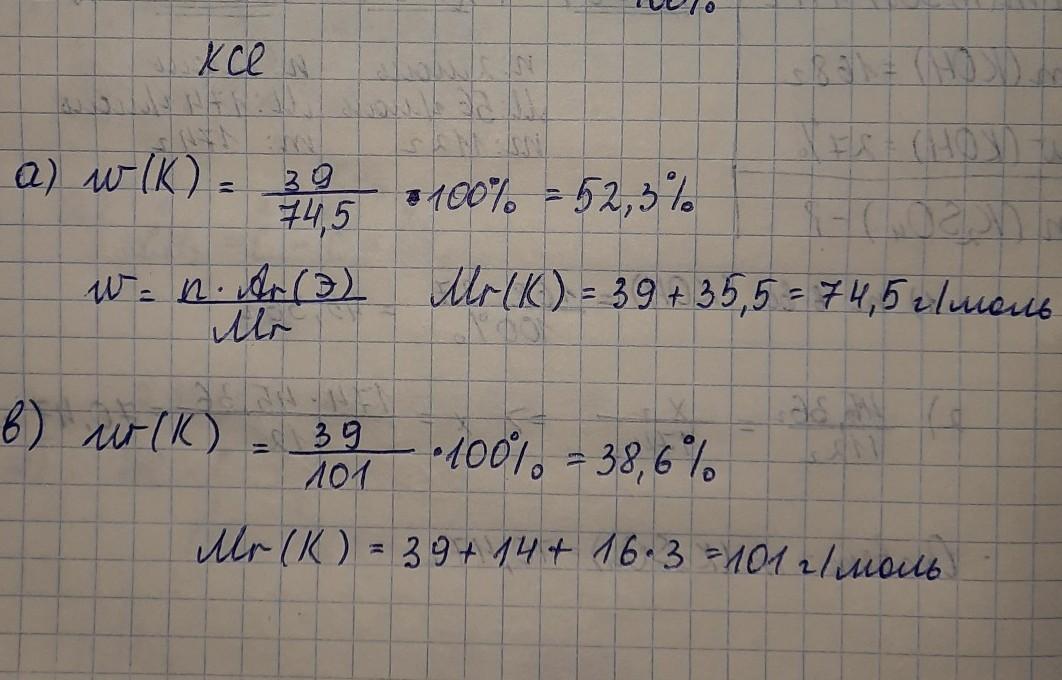 100%
KCl
а) w(K) = 39/74,5 · 100% = 52,3%
w = n · Ar(Э)/Mr Mr(K) = 39 + 35,5 = 74,5 г/моль
в) w(K) = 39/101 · 100% = 38,6%
Mr(K) = 39 + 14 + 16 · 3 = 101 г/моль